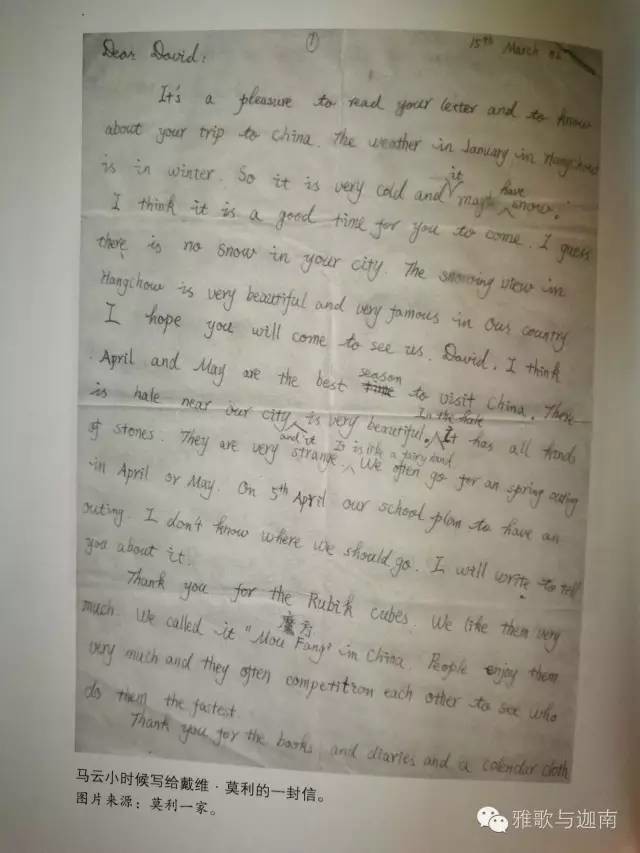 Dear David: ① 15th March 82
It's a pleasure to read your letter and to know
about your trip to China. The weather in January in Hangchow
is in winter. So it is very cold and it maybe have snow.
I think it is a good time for you to come. I guess
there is no snow in your city. The snowing view in
Hangchow is very beautiful and very famous in our country
I hope you will come to see us. David, I think
April and May are the best season to visit China. There
is hale near our city and it is very beautiful. In the hale It has all kinds
of stones. They are very strange. It is like a fairy land We often go for an spring outing
in April or May. On 5th April our school plan to have an
outing. I don't know where we should go. I will write to tell
you about it.
Thank you for the Rubik cubes. We like them very
much. We called it "Mou Fang" 魔方 in China. People enjoy them
very much and they often competition each other to see who
do them the fastest.
Thank you for the books and diaries and a calendar cloth
马云小时候写给戴维·莫利的一封信。
图片来源：莫利一家。
雅歌与迦南